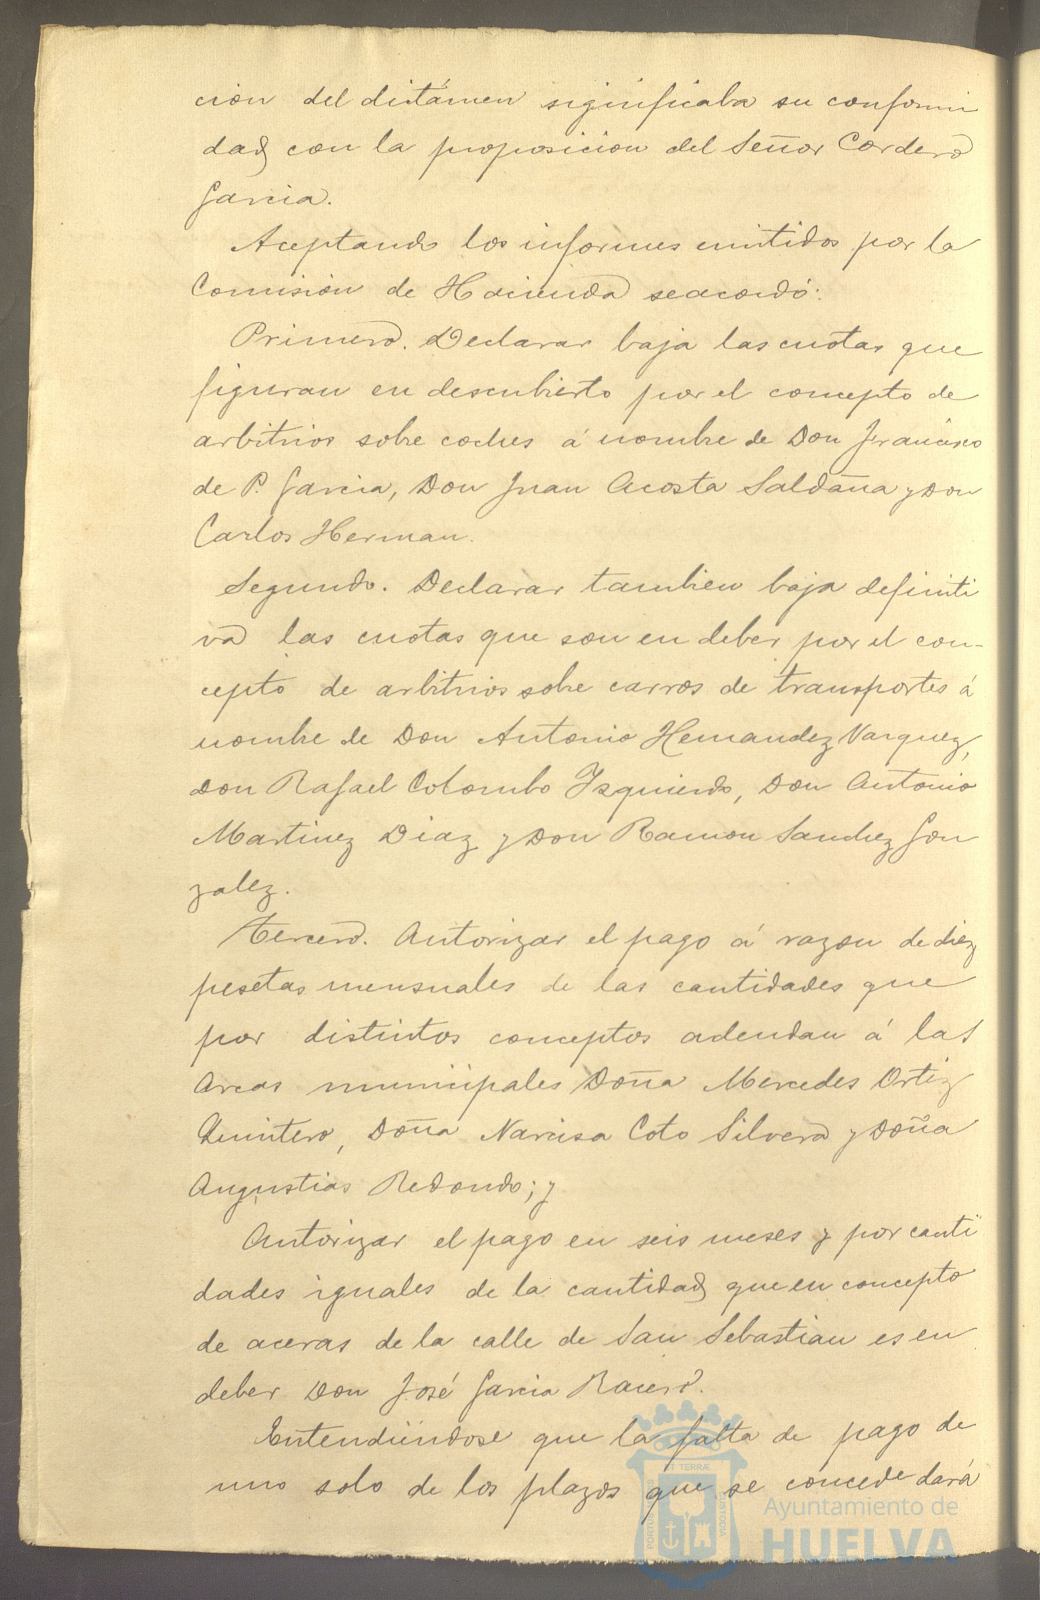 cion del dictámen significaba su conformi
dad con la proposicion del Señor Cordero
Garcia.
Aceptando los informes emitidos por la
Comisión de Hacienda se acordó:
Primero. Declarar baja las cuotas que
figuran en descubierto por el concepto de
arbitrios sobre coches á nombre de Don Francisco
de P. Garcia, Don Juan Acosta Saldaña y Don
Carlos Herman.
Segundo. Declarar tambien baja definiti
va las cuotas que son en deber por el con-
cepto de arbitrios sobre carros de transportes á
nombre de Don Antonio Hernandez Vazquez,
Don Rafael Colombo Izquierdo, Don Antonio
Martinez Diaz y Don Ramon Sanchez Gon
zalez.
Tercero. Autorizar el pago á razon de diez
pesetas mensuales de las cantidades que
por distintos conceptos adeudan á las
Arcas municipales Doña Mercedes Ortiz
Quintero, Doña Narcisa Coto Silvera y Doña
Angustias Redondo; y
Autorizar el pago en seis meses y por canti
dades iguales de la cantidad que en concepto
de aceras de la calle de San Sebastian es en
deber Don José Garcia
Entendiéndose que la falta de pago de
uno solo de los plazos que se concede dará
Ayuntamiento de
HUELVA